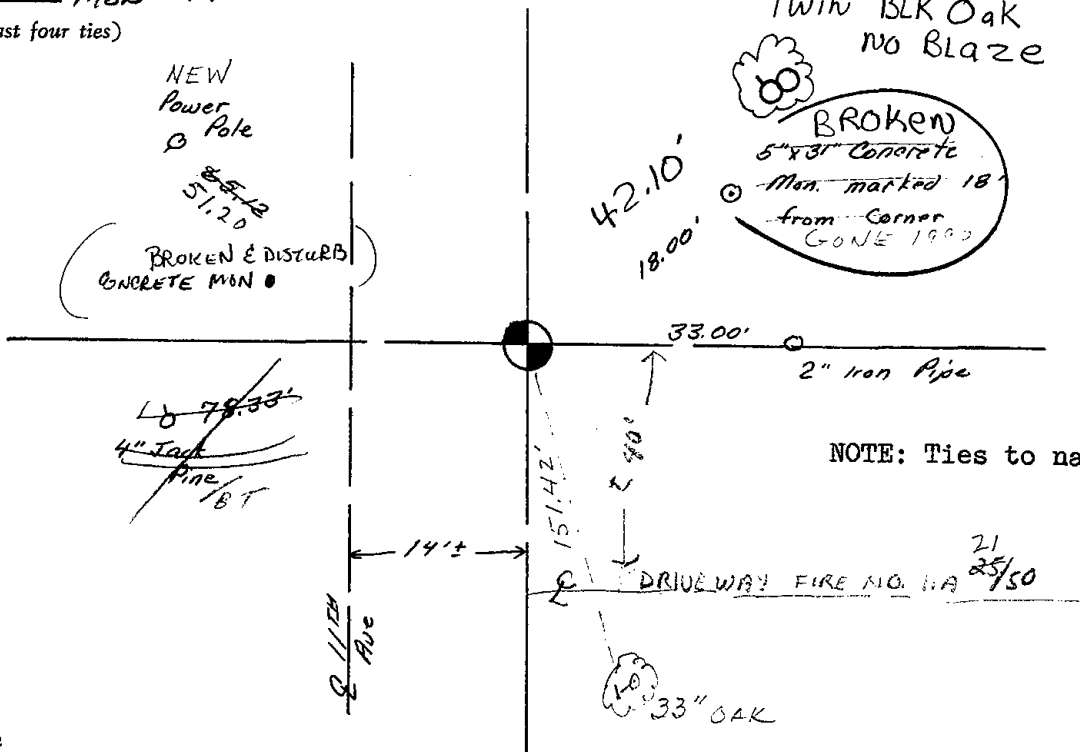 MON
ast four ties)
TWIN BLK OaK
NO BLaze
NEW
Power
Pole
65.12
51.20
BROKEN & DISTURB
CONCRETE MON
BROKEN
5"x31" Concrete
Mon. marked 18'
from Corner
GONE
42.10'
18.00'
33.00'
2" Iron Pipe
78.33'
4" Jack
Pine/BT
NOTE: Ties to na
151.42'
± 40'
14'±
21
25/50
℄ DRIVEWAY FIRE NO. 11A
℄ 11TH
Ave
33" OAK